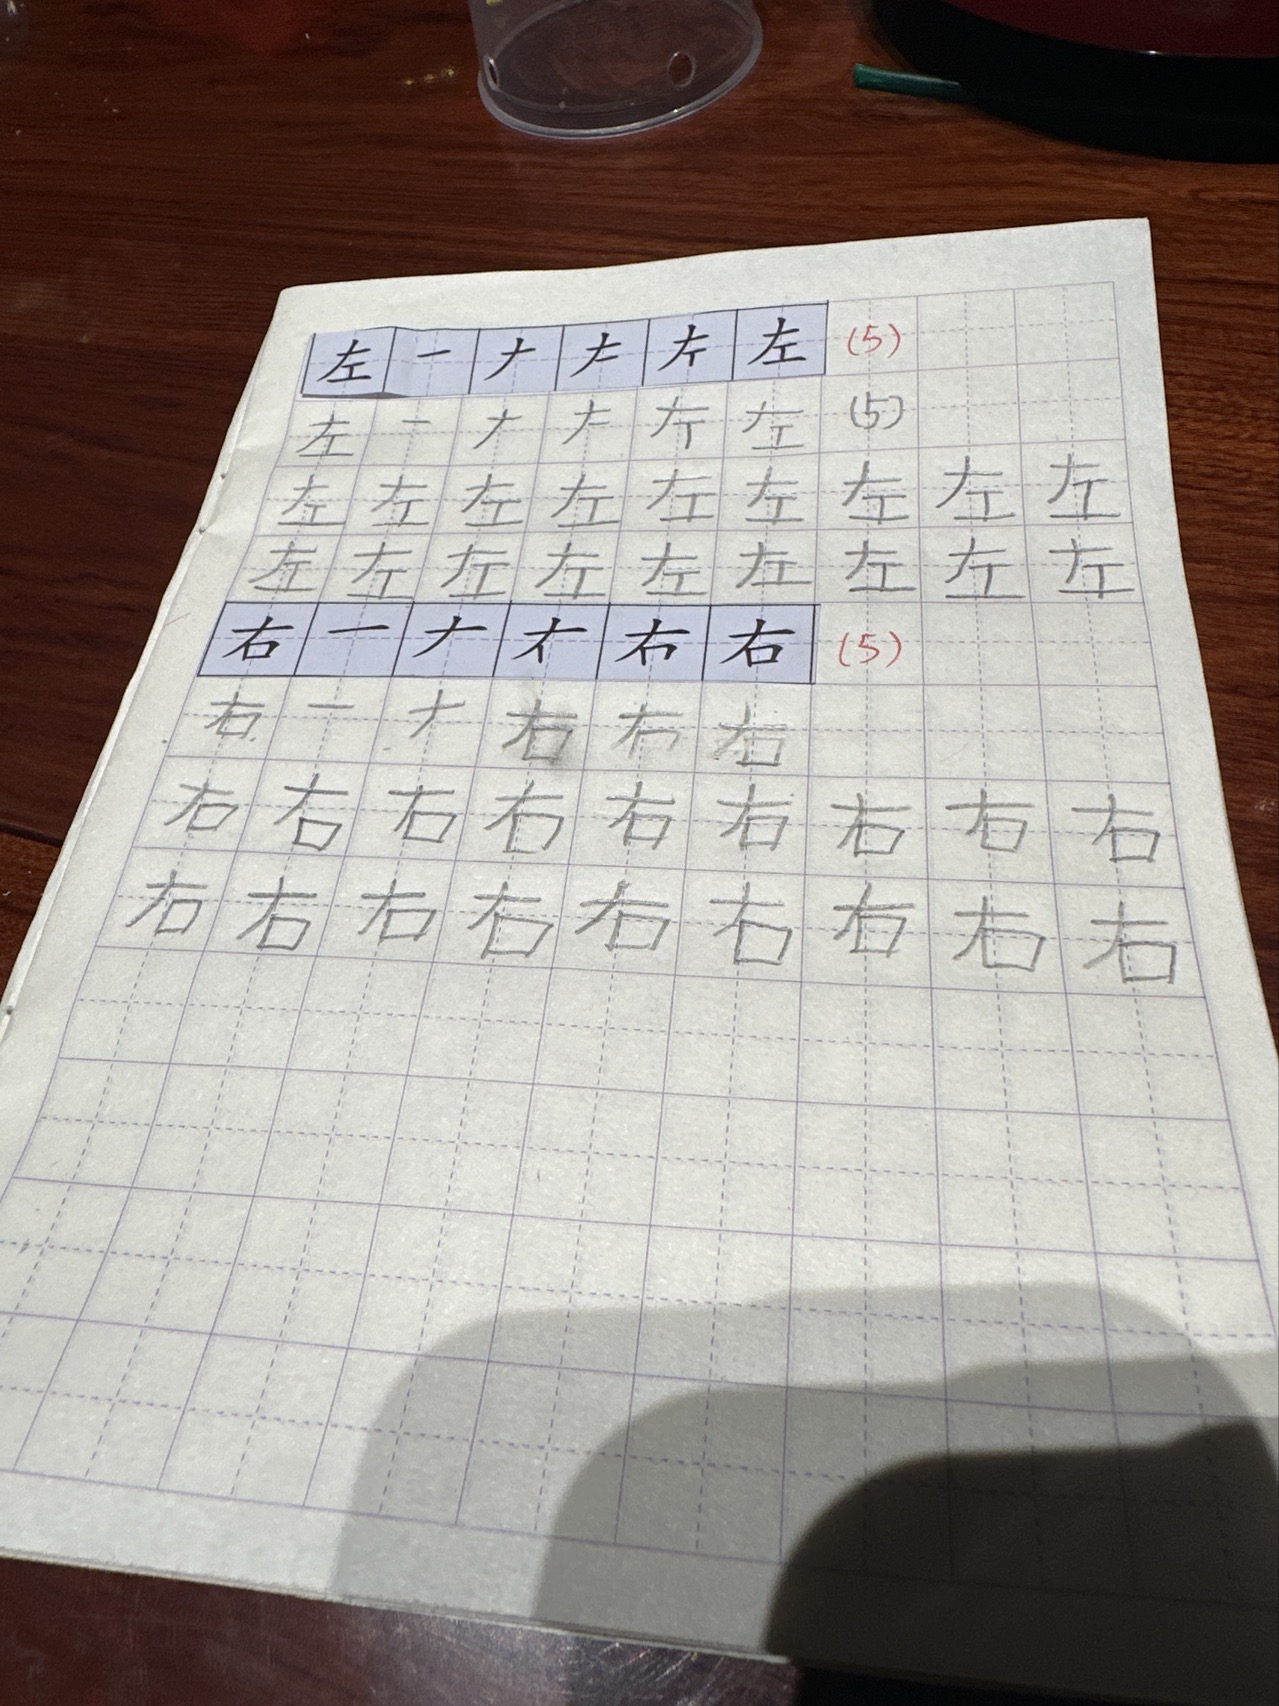 左 一 ナ 𠂇 左 左 (5)
左 一 ナ ナ 左 (5)
左 左 左 左 左 左 左 左 左
左 左 左 左 左 左 左 左 左
右 一 ナ 右 右 (5)
右 一 ナ 右 右
右 右 右 右 右 右 右 右 右
右 右 右 右 右 右 右 右 右